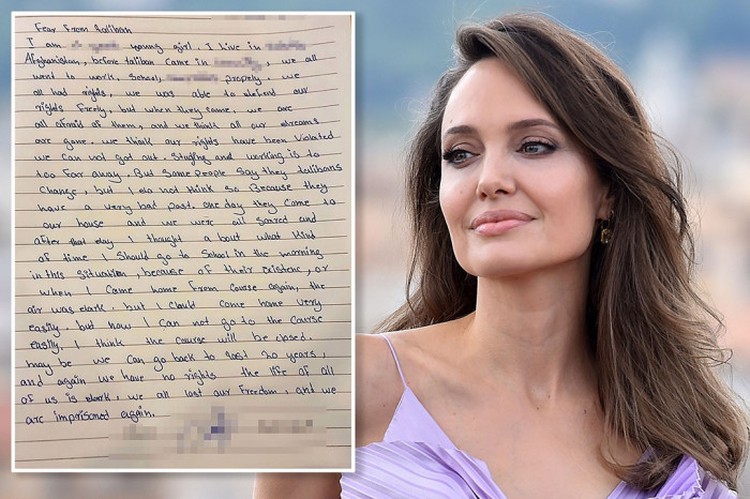 Fear From taliban
I am a young girl. I live in
Afghanistan, before taliban came in, we all
went to work, school, propely. we
all had rights, we was able to defend our
rights Freely, but when they came, we are
all afraid of them, and we think all our dreams
are gone. we think our rights have been violated
we can not got out. Studying and working is to
too far away. But Some People Say they talibans
Change, but I do not think So Because they
have a very bad past. one day they Came to
our house and we were all Scared and
after that day I thought a bout what Kind
of time I Should go to School in the morning
in this Situation, because of their existenc, or
when I Came home From Course again, the
air was dark, but I Could Come home very
easily. but now I can not go to the Course
easily. I think the course will be closed.
may be we Can go back to last 20 years,
and again we have no rights the life of all
of us is dark, we all lost our Freedom, and we
are imprisoned again.